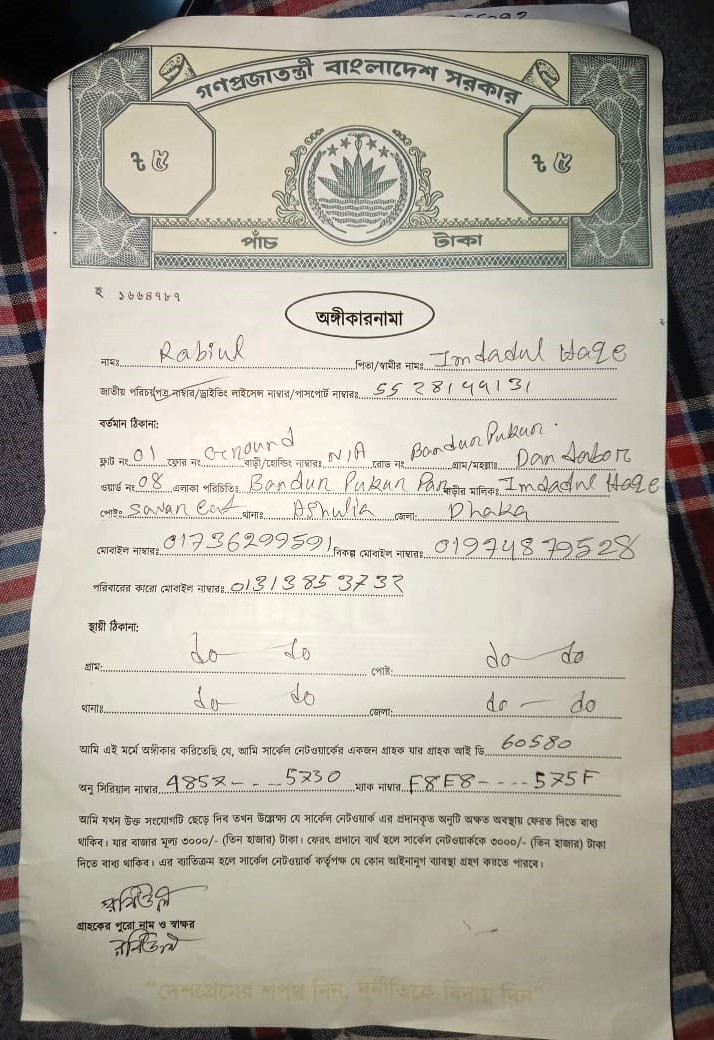 গণপ্রজাতন্ত্রী বাংলাদেশ সরকার
৳ ৫ ৳ ৫
পাঁচ টাকা
হ ১৬৬৪৭৮৭
অঙ্গীকারনামা
নামঃ Rabiul পিতা/স্বামীর নামঃ Imdadul Haqe
জাতীয় পরিচয়পত্র নাম্বার/ড্রাইভিং লাইসেন্স নাম্বার/পাসপোর্ট নাম্বারঃ 5528199131
বর্তমান ঠিকানা:
ফ্লাট নং 01 ফ্লোর নং Ground বাড়ী/হোল্ডিং নাম্বারঃ N/A রোড নং Bandun Pukur গ্রাম/মহল্লাঃ Dandabor
ওয়ার্ড নং 08 এলাকা পরিচিতিঃ Bandun Pukur Par বাড়ীর মালিকঃ Imdadul Haqe
পোষ্টঃ Savar Cant থানাঃ Ashulia জেলা: Dhaka
মোবাইল নাম্বারঃ 01736299591 বিকল্প মোবাইল নাম্বারঃ 01974879528
পরিবারের কারো মোবাইল নাম্বারঃ 01313853732
স্থায়ী ঠিকানা:
গ্রাম: do do পোষ্ট: do do
থানাঃ do do জেলা: do – do
আমি এই মর্মে অঙ্গীকার করিতেছি যে, আমি সার্কেল নেটওয়ার্কের একজন গ্রাহক যার গ্রাহক আই ডি 60580
অনু সিরিয়াল নাম্বার 4857- - - -5730 ম্যাক নাম্বার F8E8- - - - 575F
আমি যখন উক্ত সংযোগটি ছেড়ে দিব তখন উল্লেখ্য যে সার্কেল নেটওয়ার্ক এর প্রদানকৃত অনুটি অক্ষত অবস্থায় ফেরত দিতে বাধ্য
থাকিব। যার বাজার মূল্য ৩০০০/- (তিন হাজার) টাকা। ফেরৎ প্রদানে ব্যর্থ হলে সার্কেল নেটওয়ার্ককে ৩০০০/- (তিন হাজার) টাকা
দিতে বাধ্য থাকিব। এর ব্যতিক্রম হলে সার্কেল নেটওয়ার্ক কর্তৃপক্ষ যে কোন আইনানুগ ব্যবস্থা গ্রহণ করতে পারবে।
রবিউল
গ্রাহকের পুরো নাম ও স্বাক্ষর
রবিউল
"দেশপ্রেমের শপথ নিন, দুর্নীতিকে বিদায় দিন"